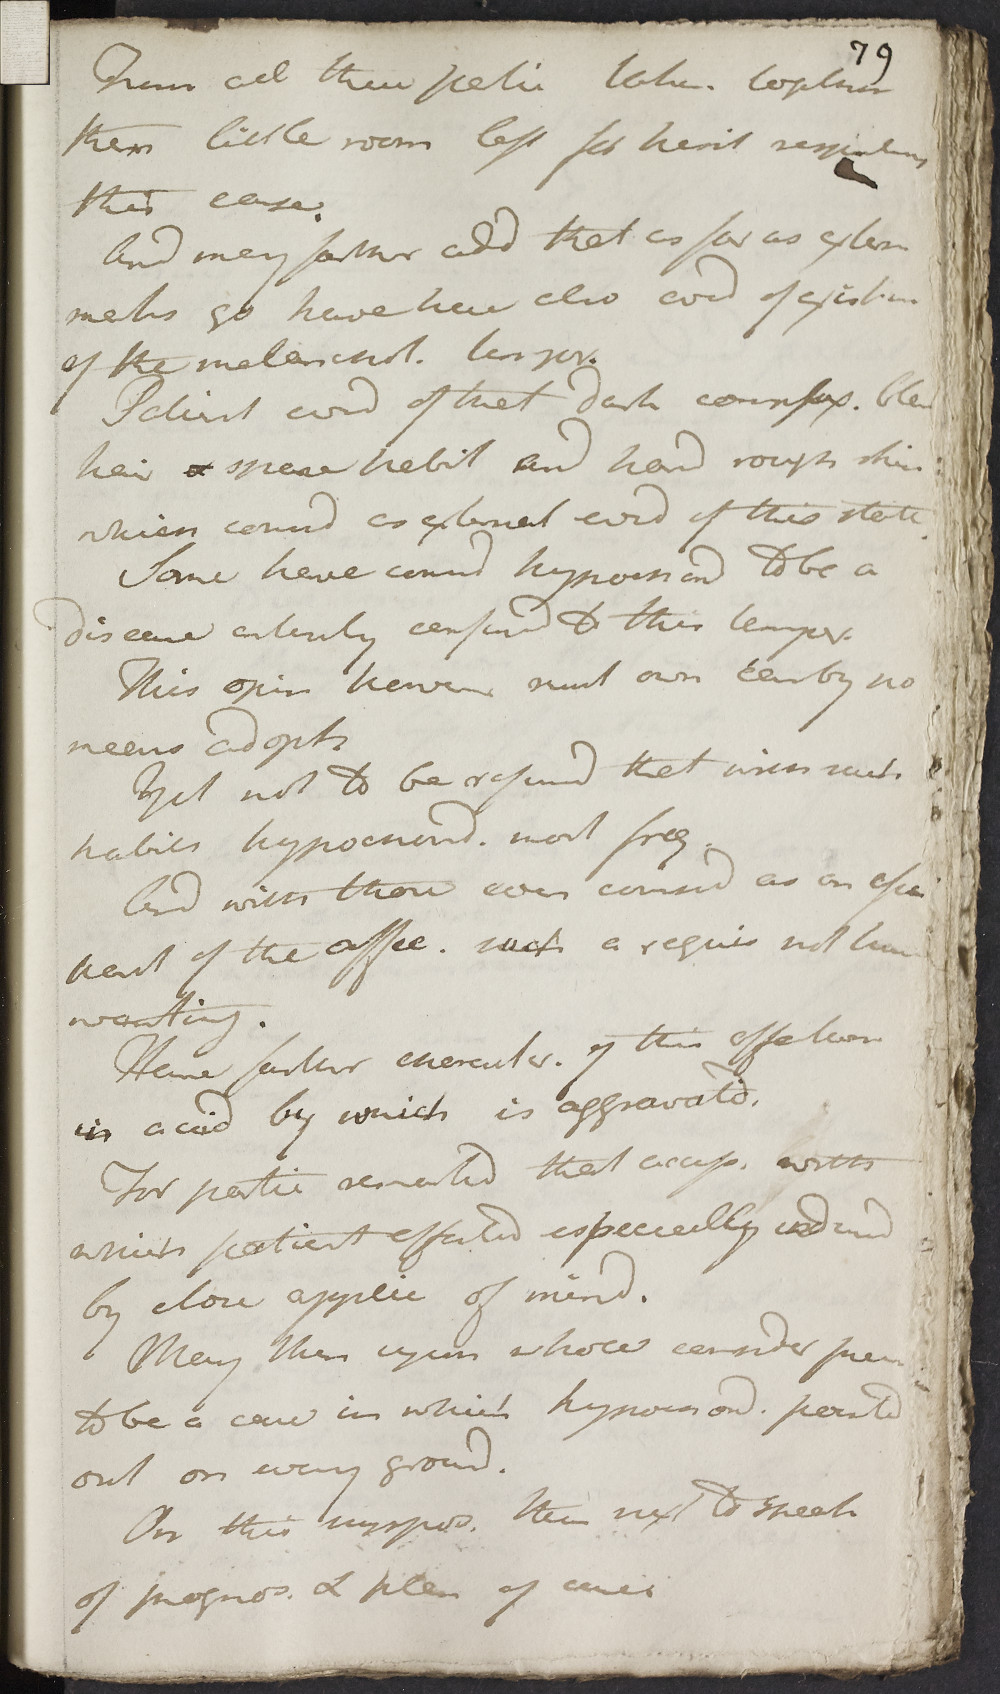 79
From all these partic taken together
then little room left for hesit respecting
this case.
And may farther add that as far as extern
marks go have here also evid of existence
of the melanchol. temper.
Patient evid of that dark complex. black
hair & spare habit and hard rough skin
which consid as external evid of this state.
Some have consid hypochond to be a
disease entirely confined to this temper.
This opin however must own can by no
means adopt
Yet not to be refused that with such
habits hypochond. most freq.
And with those even consid as an essen
part of the affec. such a requis not here
wanting.
Have farther character. of this affection
in acid by which is aggravated.
For partic remarked that
which patient affected especially induced
by close applic of mind.
May then upon whole consider
to be a case in which hypochond. pointed
out on every ground.
On this suppos. then next to speak
of prognos. & plan of cure